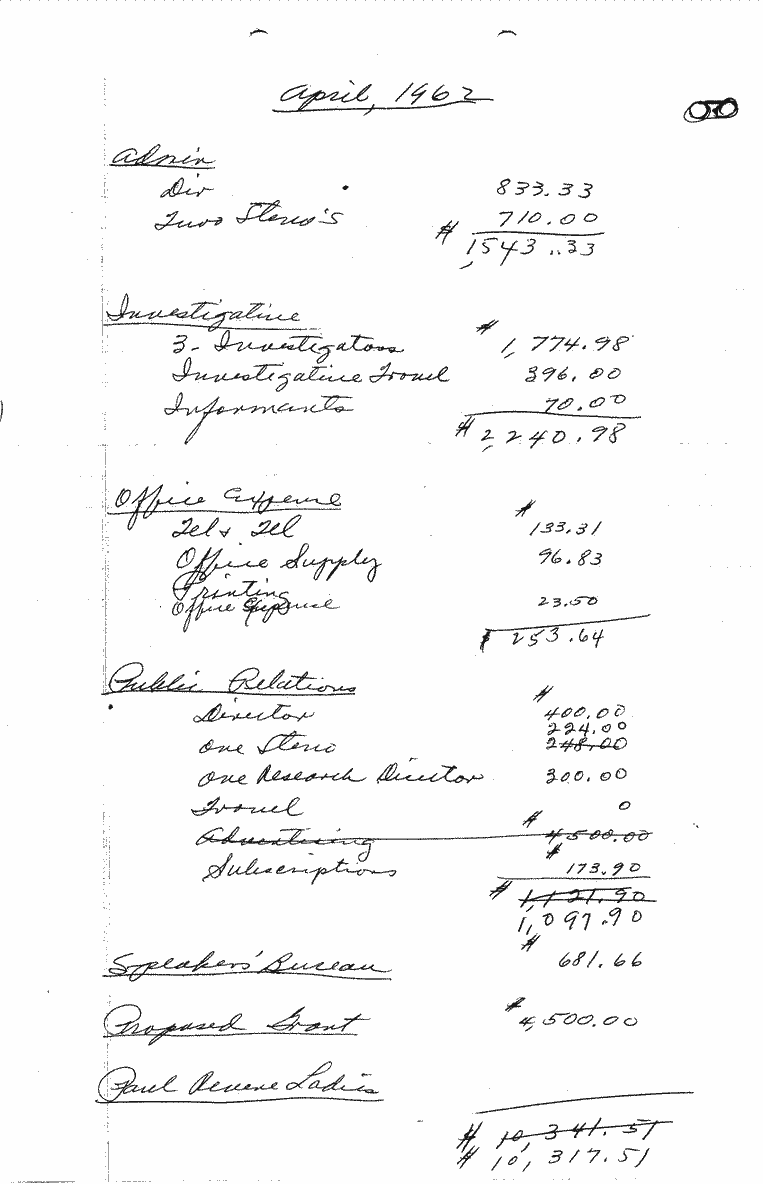 April, 1962
Admin
Dir 833.33
Two Steno's 710.00
$ 1,543.33
Investigative
3- Investigators $ 1,774.98
Investigative Travel 396.00
Informants 70.00
$ 2,240.98
Office Expense
Tel & Tel $ 133.31
Office Supply 96.83
Printing
Office Expense 23.50
$ 253.64
Public Relations
Director $ 400.00
224.00
One Steno 248.00
One Research Director 300.00
Travel 0
Advertising $ 4,500.00
Subscriptions $ 173.90
$ 1,121.90
1,097.90
Speakers' Bureau $ 681.66
Proposed Grant $ 4,500.00
Paul Revere Ladies
$ 10,341.51
$ 10,317.51